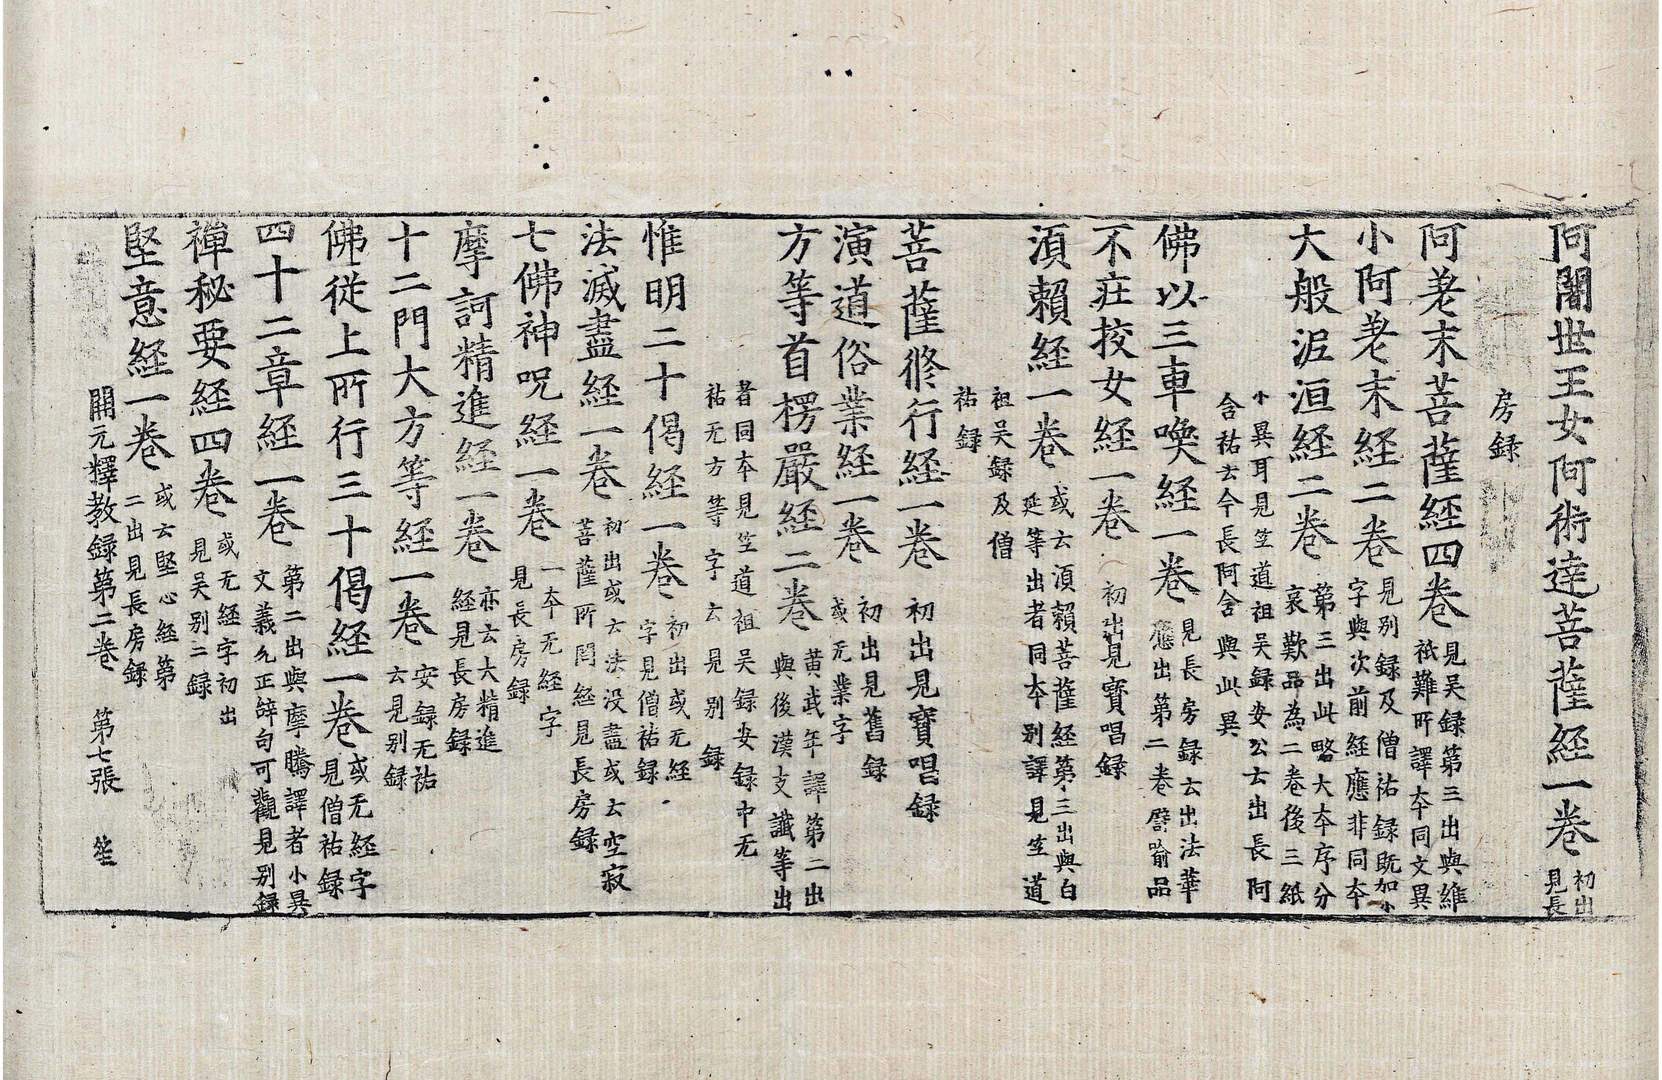 阿闍世王女阿術達菩薩経一卷初出見長
房録
阿差末菩薩経四卷見吴録第三出與維祇難所譯夲同文異
小阿差末経二卷見别録及僧祐録既加小字與次前経應非同夲
大般泥洹経二卷第三出此略大夲序分哀歎品為二卷後三紙
小異耳見竺道祖吴録安公云出長阿含祐云今長阿含與此異
佛以三車喚経一卷見長房録云出法華應出第二卷譬喻品
不疘挍女経一卷初出見寳唱録
湏賴経一卷或云湏賴菩薩経第三出與白延等出者同夲别譯見竺道
祖吴録及僧祐録
菩薩修行経一卷初出見寳唱録
演道俗業経一卷初出見舊録或无業字
方等首楞嚴経二卷黄武年譯第二出與後漢支讖等出
者同夲見竺道祖吴録安録中无祐无方等字云見别録
惟明二十偈経一卷初出或无経字見僧祐録
法滅盡経一卷初出或云法没盡或云空寂菩薩所問経見長房録
七佛神呪経一卷一夲无経字見長房録
摩訶精進経一卷亦云大精進経見長房録
十二門大方等経一卷安録无祐云見别録
佛從上所行三十偈経一卷或无経字見僧祐録
四十二章経一卷第二出與摩騰譯者小異文義允正辝句可觀見别録
禅秘要経四卷或无経字初出見吴别二録
堅意経一卷或云堅心経第二出見長房録
開元釋教録第二卷　第七張　笙